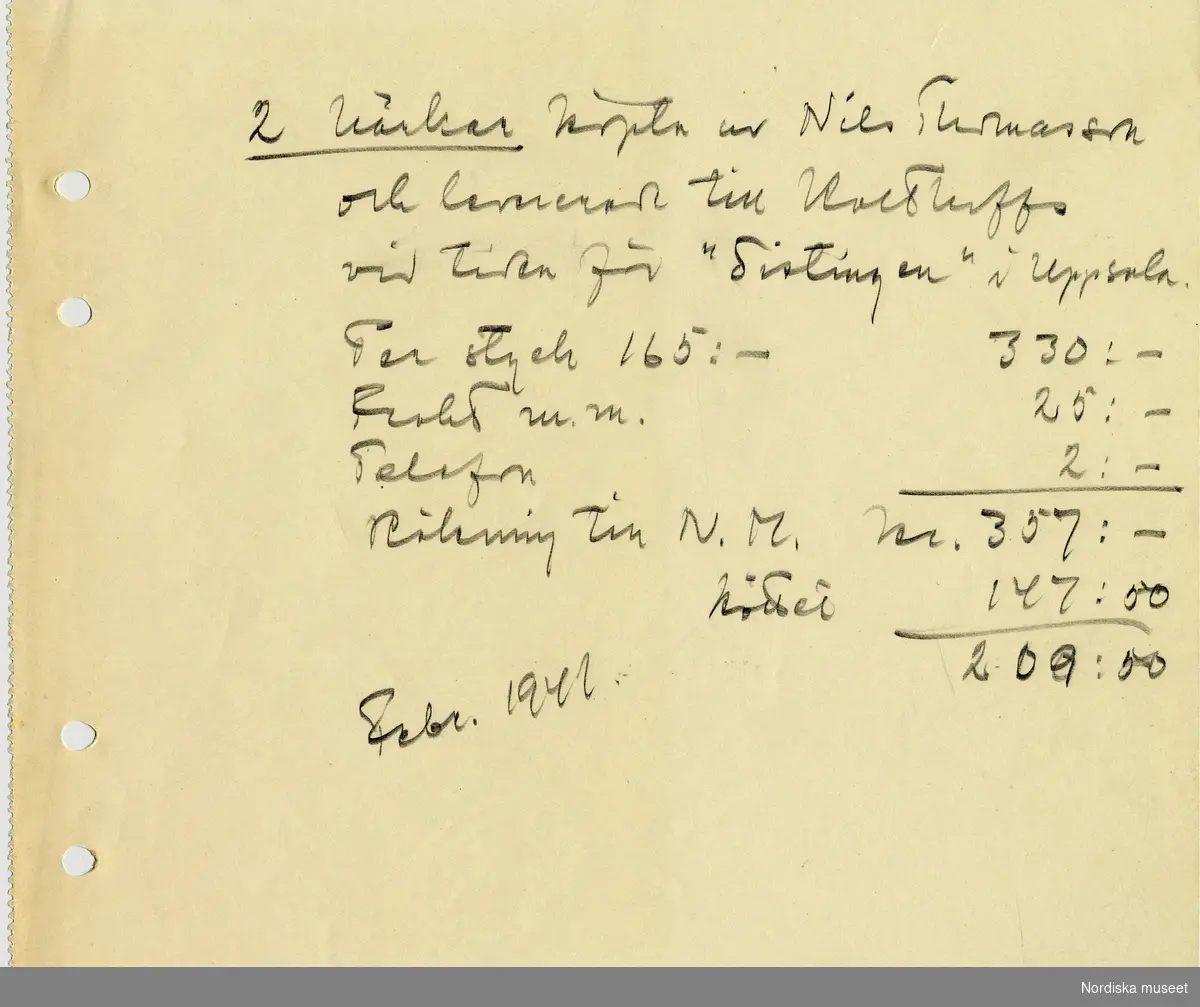 2 härkar köpta av Nils Thomasson
och levererade till Kolthoffs
vid tiden för "Distingen" i Uppsala.
Per styck 165:– 330:–
Frakt m.m. 25:–
Telefon 2:–
Räkning till N.M. kr. 357:–
köttet 147:50
209:50
Febr. 1941.
Nordiska museet